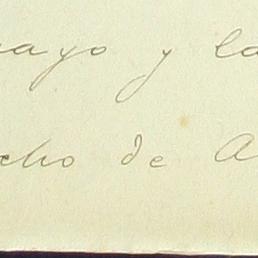 ayo y la
cho de A